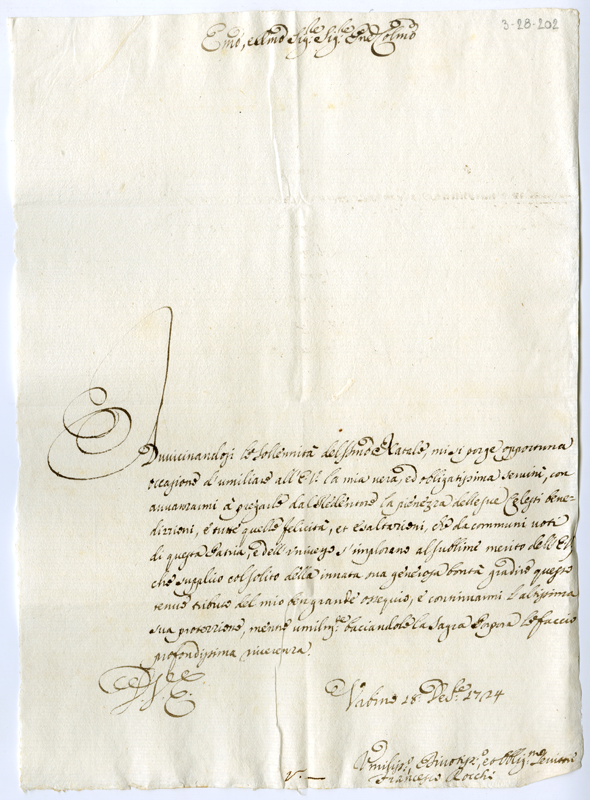 3-28-202
Emo, e Rmo Sig.re Sig.re Pne Colmo
Avvicinandosi le Sollennità del Smo Natale, mi si porge opportuna
occasione d'umiliare all'E.V. la mia vera, ed obligatissima servitù, con
avvanzarmi à pregarle dal Redentore la pienezza delle sue Celesti bene=
dizzioni, e tutte quelle felicità, et esaltazioni, che da communi voti
di questa Patria, e dell'universo s'implorano al sublime merito dell'E.V.
che supplico col solito della innata sua generosa bontà gradire questo
tenue tributo del mio ben grande ossequio, e continuarmi l'altissima
sua protezzione, mentre umilm.te baciandole la Sagra Porpora le faccio
profondissima riverenza.
D. V. E.
Urbino 18 Dec.e 1724
Umiliss.o, Divotiss.o, et Oblig.mo Servitore
Francesco Rocchi